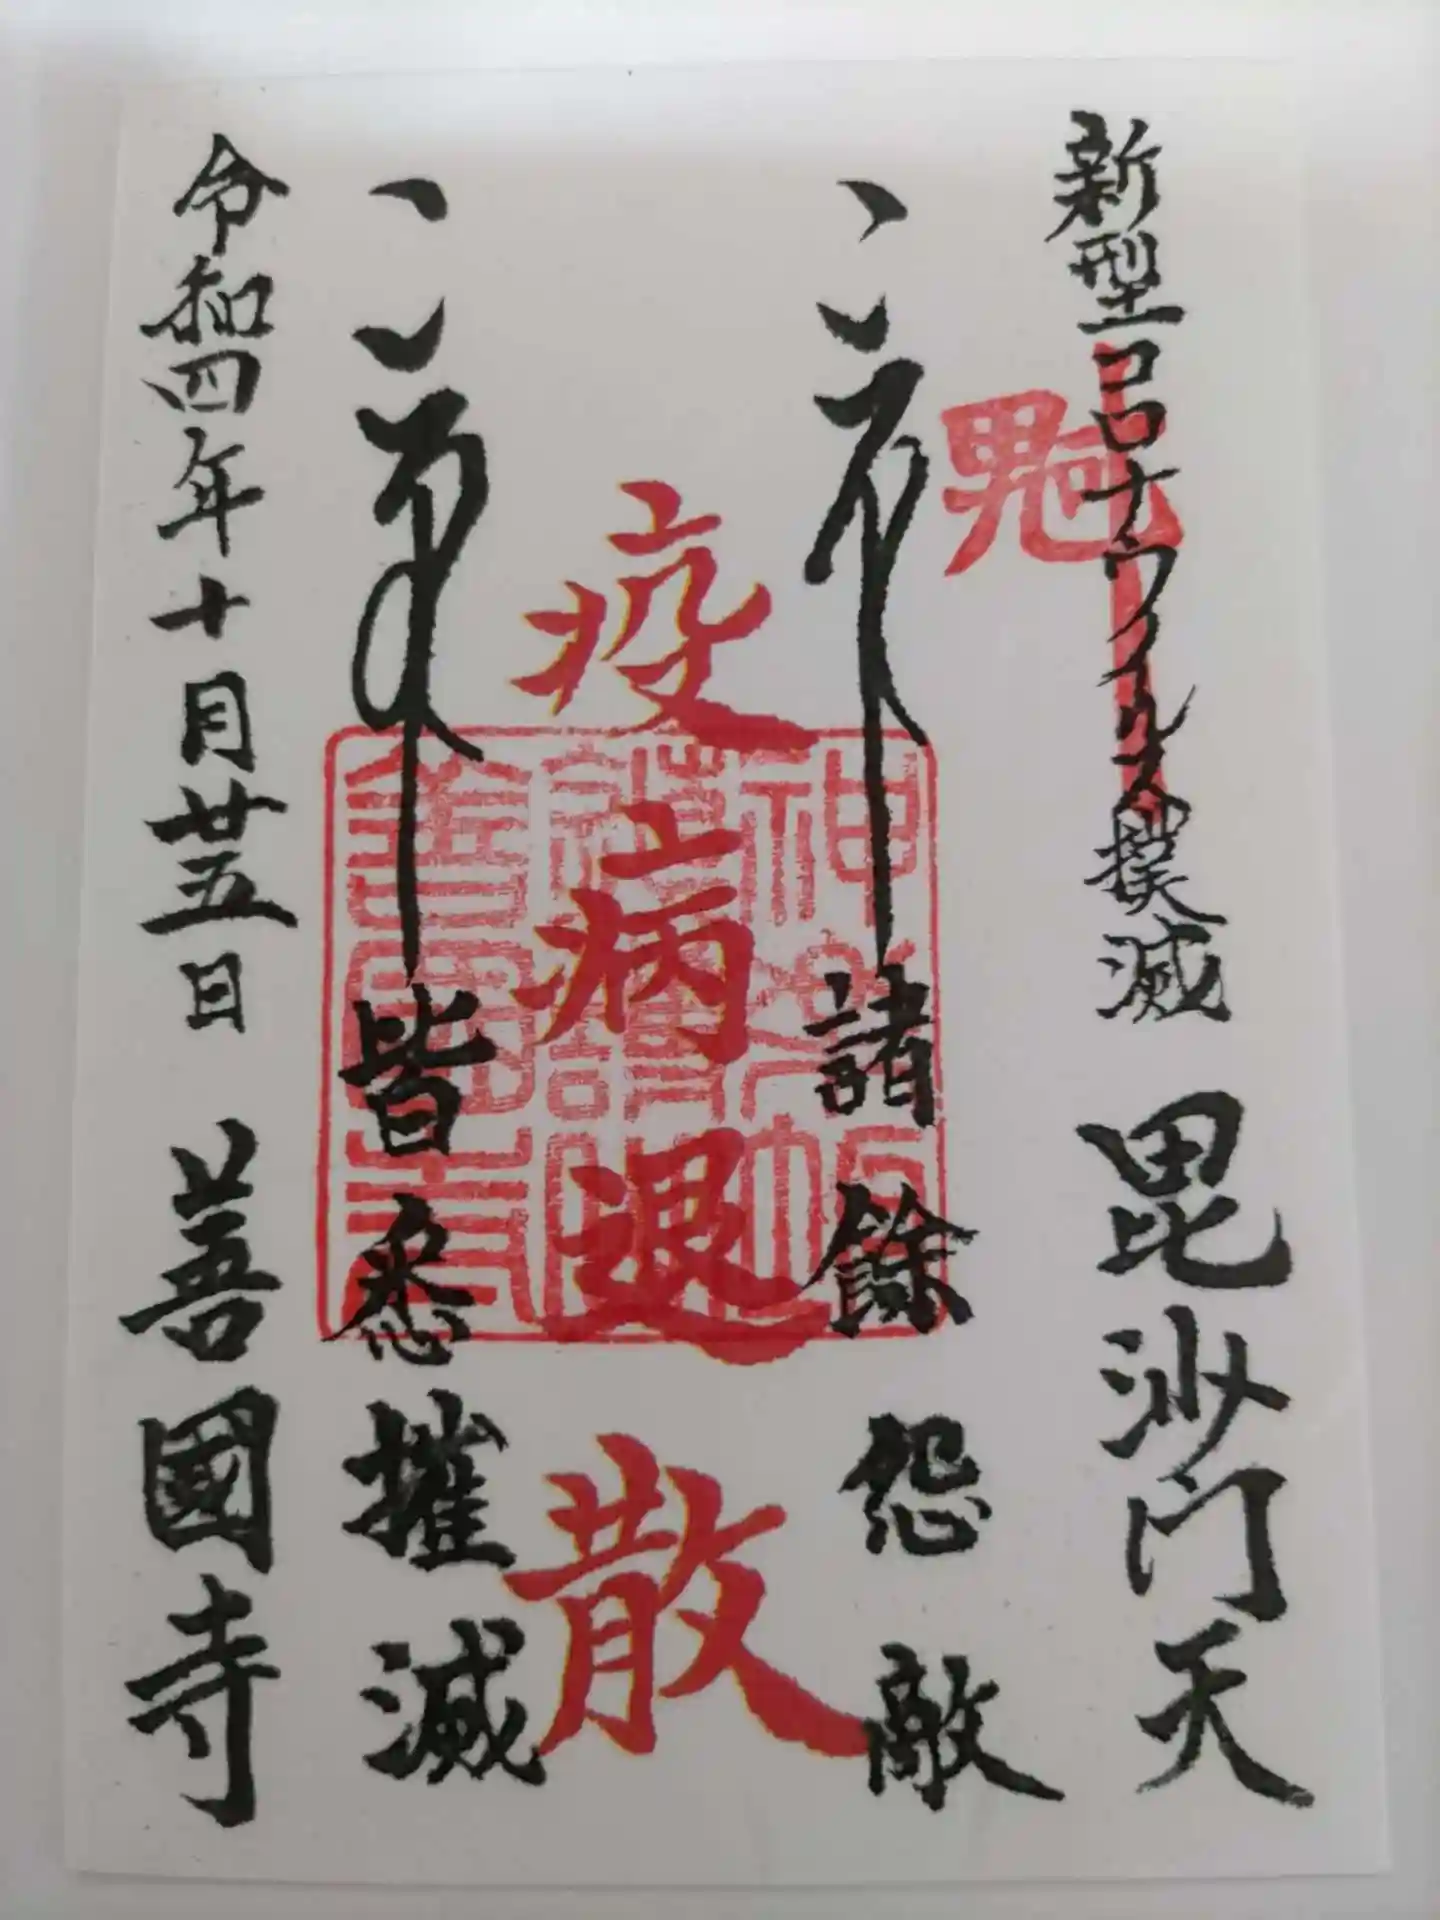 新型コロナウイルス撲滅 毘沙門天
諸餘怨敵
疫病退散
皆悉摧滅
令和四年十月廿五日 善國寺
神楽坂
鎮護
善國寺